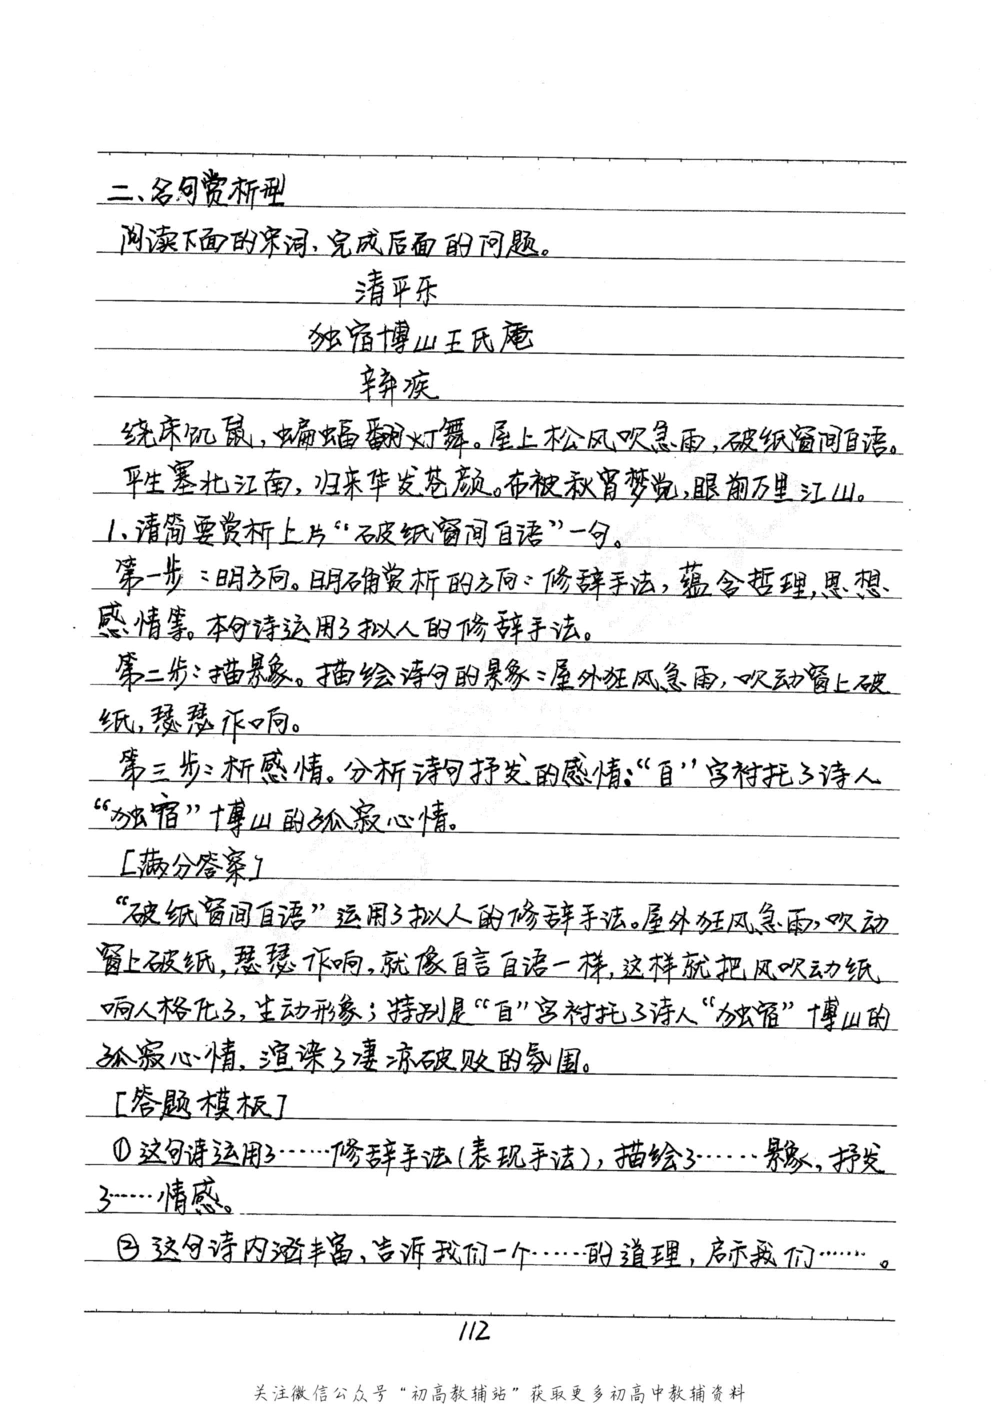 二、名句赏析型
阅读下面的宋词，完成后面的问题。
清平乐
独宿博山王氏庵
辛弃疾
绕床饥鼠，蝙蝠翻灯舞。屋上松风吹急雨，破纸窗间自语。
平生塞北江南，归来华发苍颜。布被秋宵梦觉，眼前万里江山。
1、请简要赏析上片“破纸窗间自语”一句。
第一步：明方向。明确赏析的方向：修辞手法，蕴含哲理，思想
感情等。本句诗运用了拟人的修辞手法。
第二步：描景象。描绘诗句的景象：屋外狂风急雨，吹动窗上破
纸，瑟瑟作响。
第三步：析感情。分析诗句抒发的感情：“自”字衬托了诗人
“独宿”博山的孤寂心情。
[满分答案]
“破纸窗间自语”运用了拟人的修辞手法。屋外狂风急雨，吹动
窗上破纸，瑟瑟作响，就像自言自语一样，这样就把风吹动纸
响人格化了，生动形象；特别是“自”字衬托了诗人“独宿”博山的
孤寂心情，渲染了凄凉破败的氛围。
[答题模板]
①这句诗运用了……修辞手法(表现手法)，描绘了……景象，抒发
了……情感。
②这句诗内涵丰富，告诉我们一个……的道理，启示我们……。
112
关注微信公众号“初高教辅站”获取更多初高中教辅资料